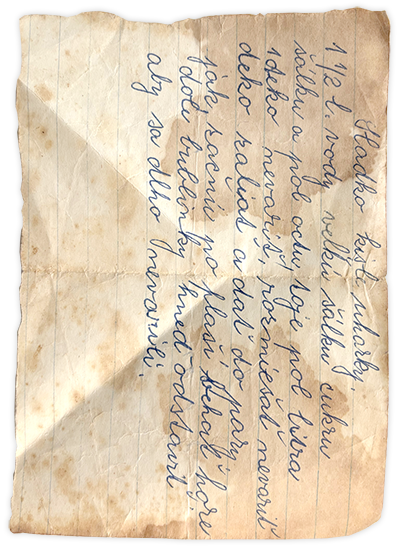 Sladko kisli uharky.
1 1/2 l. vody velku šálku cukru
šálku a pol octu, soje pol litra
1 deko nevariť, rozmiešat nevariť
deko zaliat a dať do pary
jak začnu po flaši hore
doli bublinky hned odstavit,
aby sa dlho nevarili.